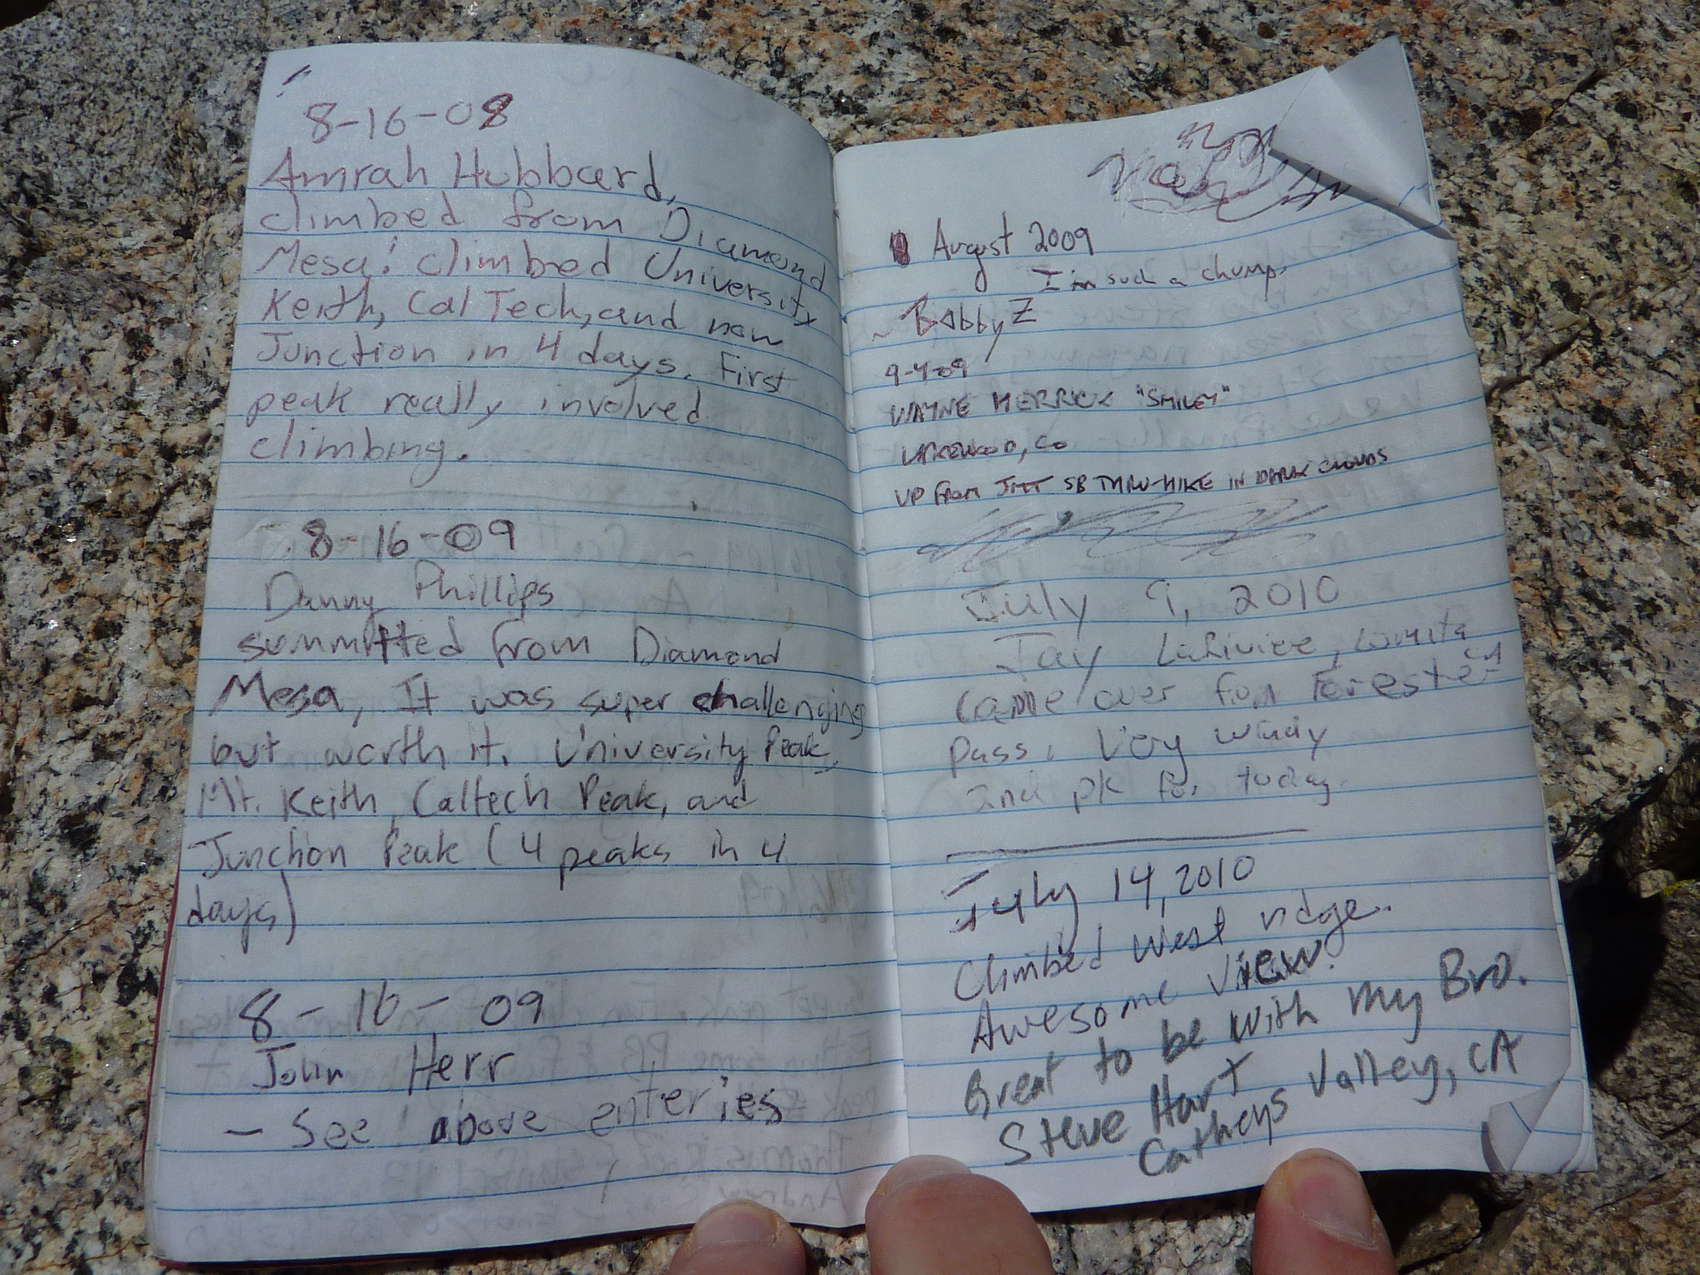 8-16-08
Amrah Hubbard,
climbed from Diamond
Mesa! climbed University
Keith, Cal Tech, and now
Junction in 4 days. First
peak really involved
climbing.
8-16-09
Danny Phillips
summitted from Diamond
Mesa, It was super challenging
but worth it. University Peak,
Mt. Keith, Caltech Peak, and
Junction Peak (4 peaks in 4
days)
8-16-09
John Herr
- See above enteries
August 2009
I'm such a chump.
~ Bobby Z
9-4-09
WAYNE MERRICK "SMILEY"
LAKEWOOD, CO
UP FROM JMT SB THRU-HIKE IN DARK CLOUDS
July 9, 2010
Jay LaRiviere, Lomita
CA
Came over from Forester
pass. Very windy
2nd pk for today.
July 14, 2010
Climbed West ridge.
Awesome view!
Great to be with my Bro.
Steve Hart
Catheys Valley, CA